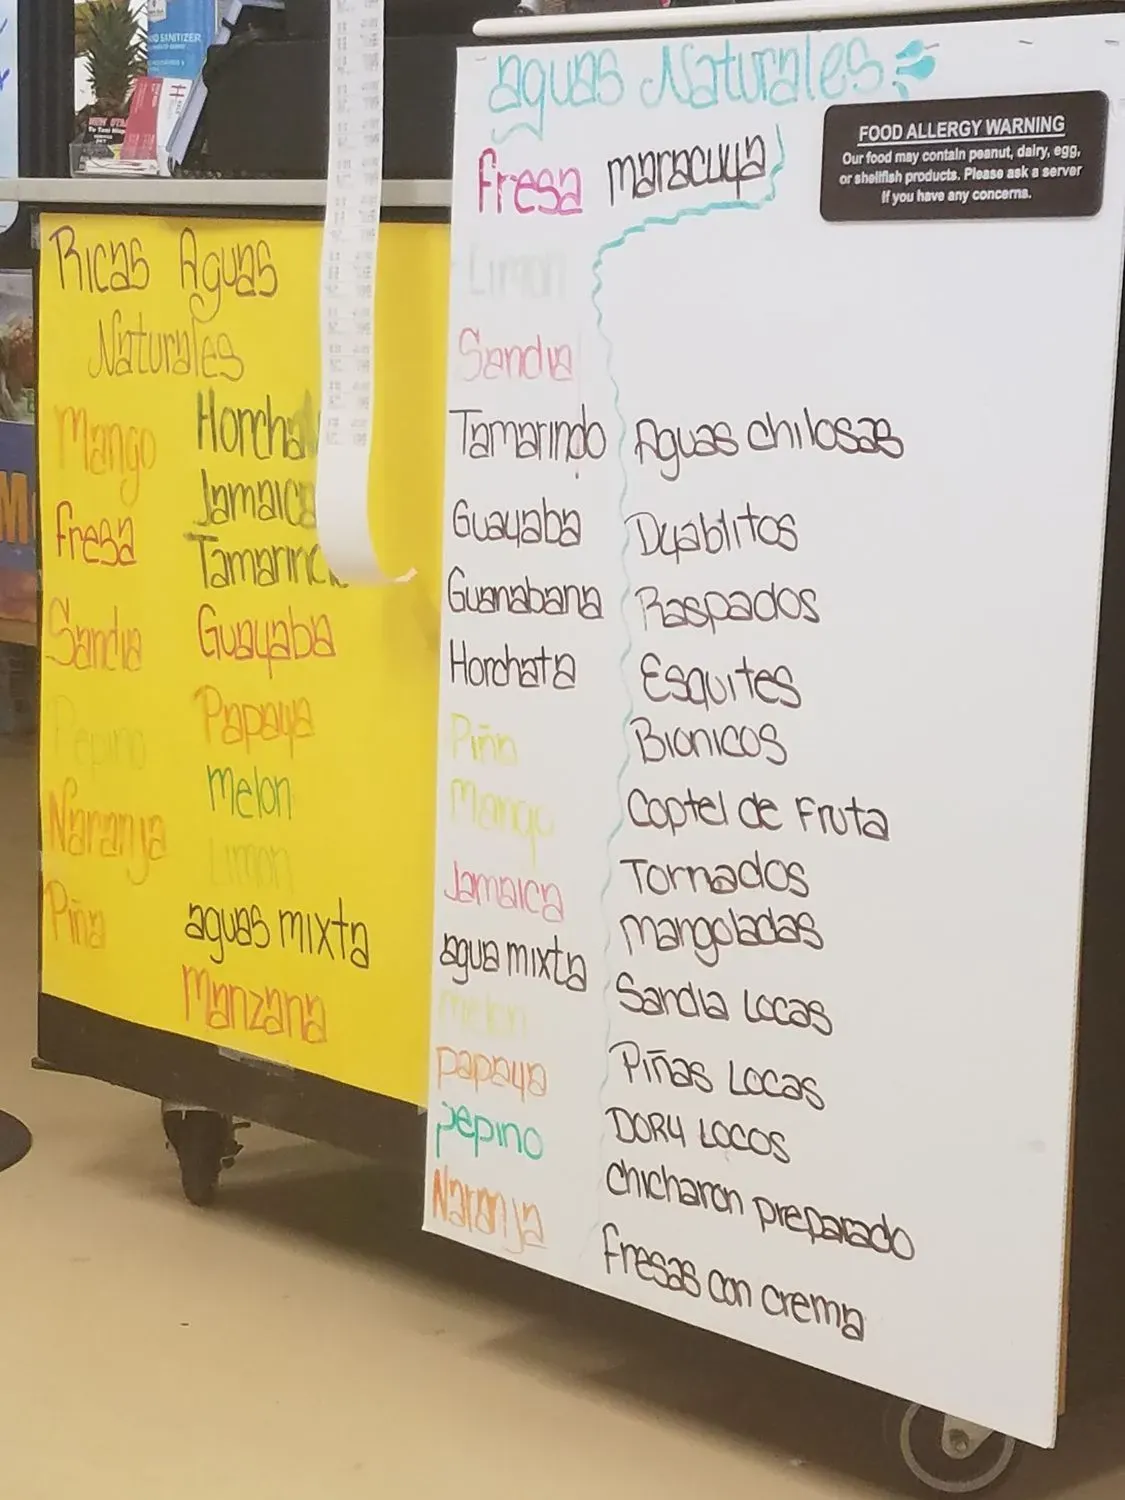 HAND SANITIZER
Ricas Aguas
Naturales
Mango
Fresa
Sandia
Pepino
Naranja
Piña
Horcha
Jamaica
Tamarind
Guayaba
Papaya
Melon
Limon
aguas mixta
Manzana
aguas Naturales
Fresa maracuya
Limon
Sandia
Tamarindo
Guayaba
Guanabana
Horchata
Piña
Mango
Jamaica
agua mixta
Melon
Papaya
pepino
Naranja
FOOD ALLERGY WARNING
Our food may contain peanut, dairy, egg,
or shellfish products. Please ask a server
if you have any concerns.
Aguas chilosas
Dyablitos
Raspados
Esquites
Bionicos
Coptel de Fruta
Tornados
Mangoladas
Sandia Locas
Piñas Locas
DORY LOCOS
chicharon preparado
Fresas con crema